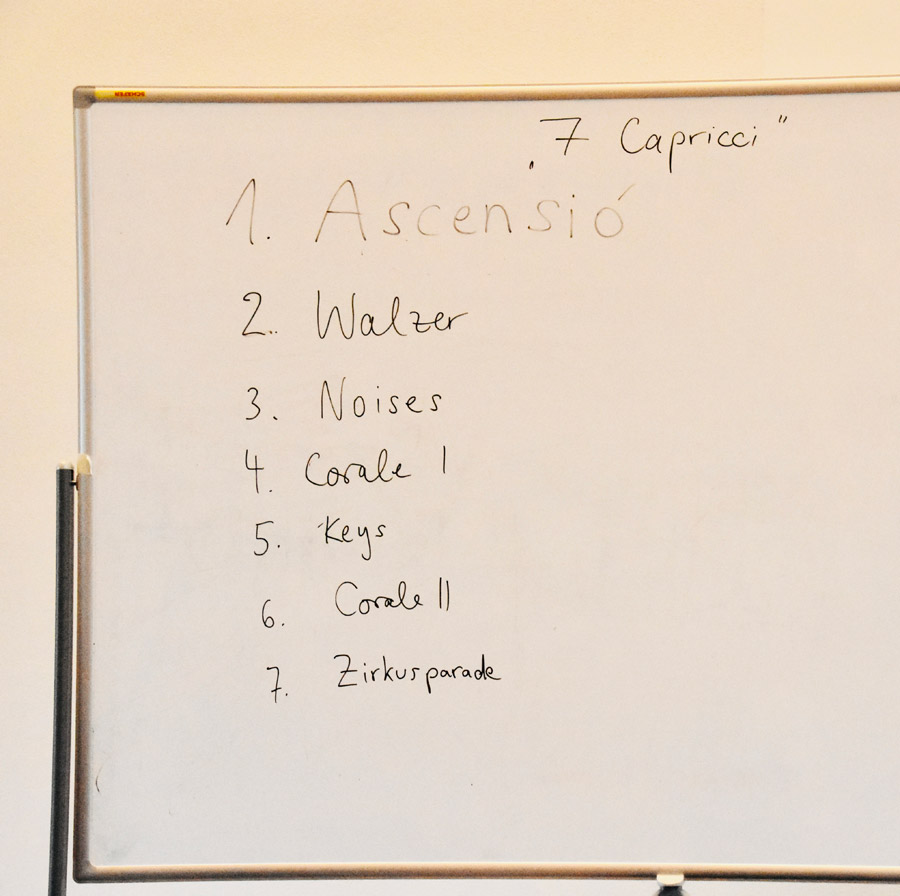 SCHÄFER
„7 Capricci“
1. Ascensió
2. Walzer
3. Noises
4. Corale I
5. Keys
6. Corale II
7. Zirkusparade